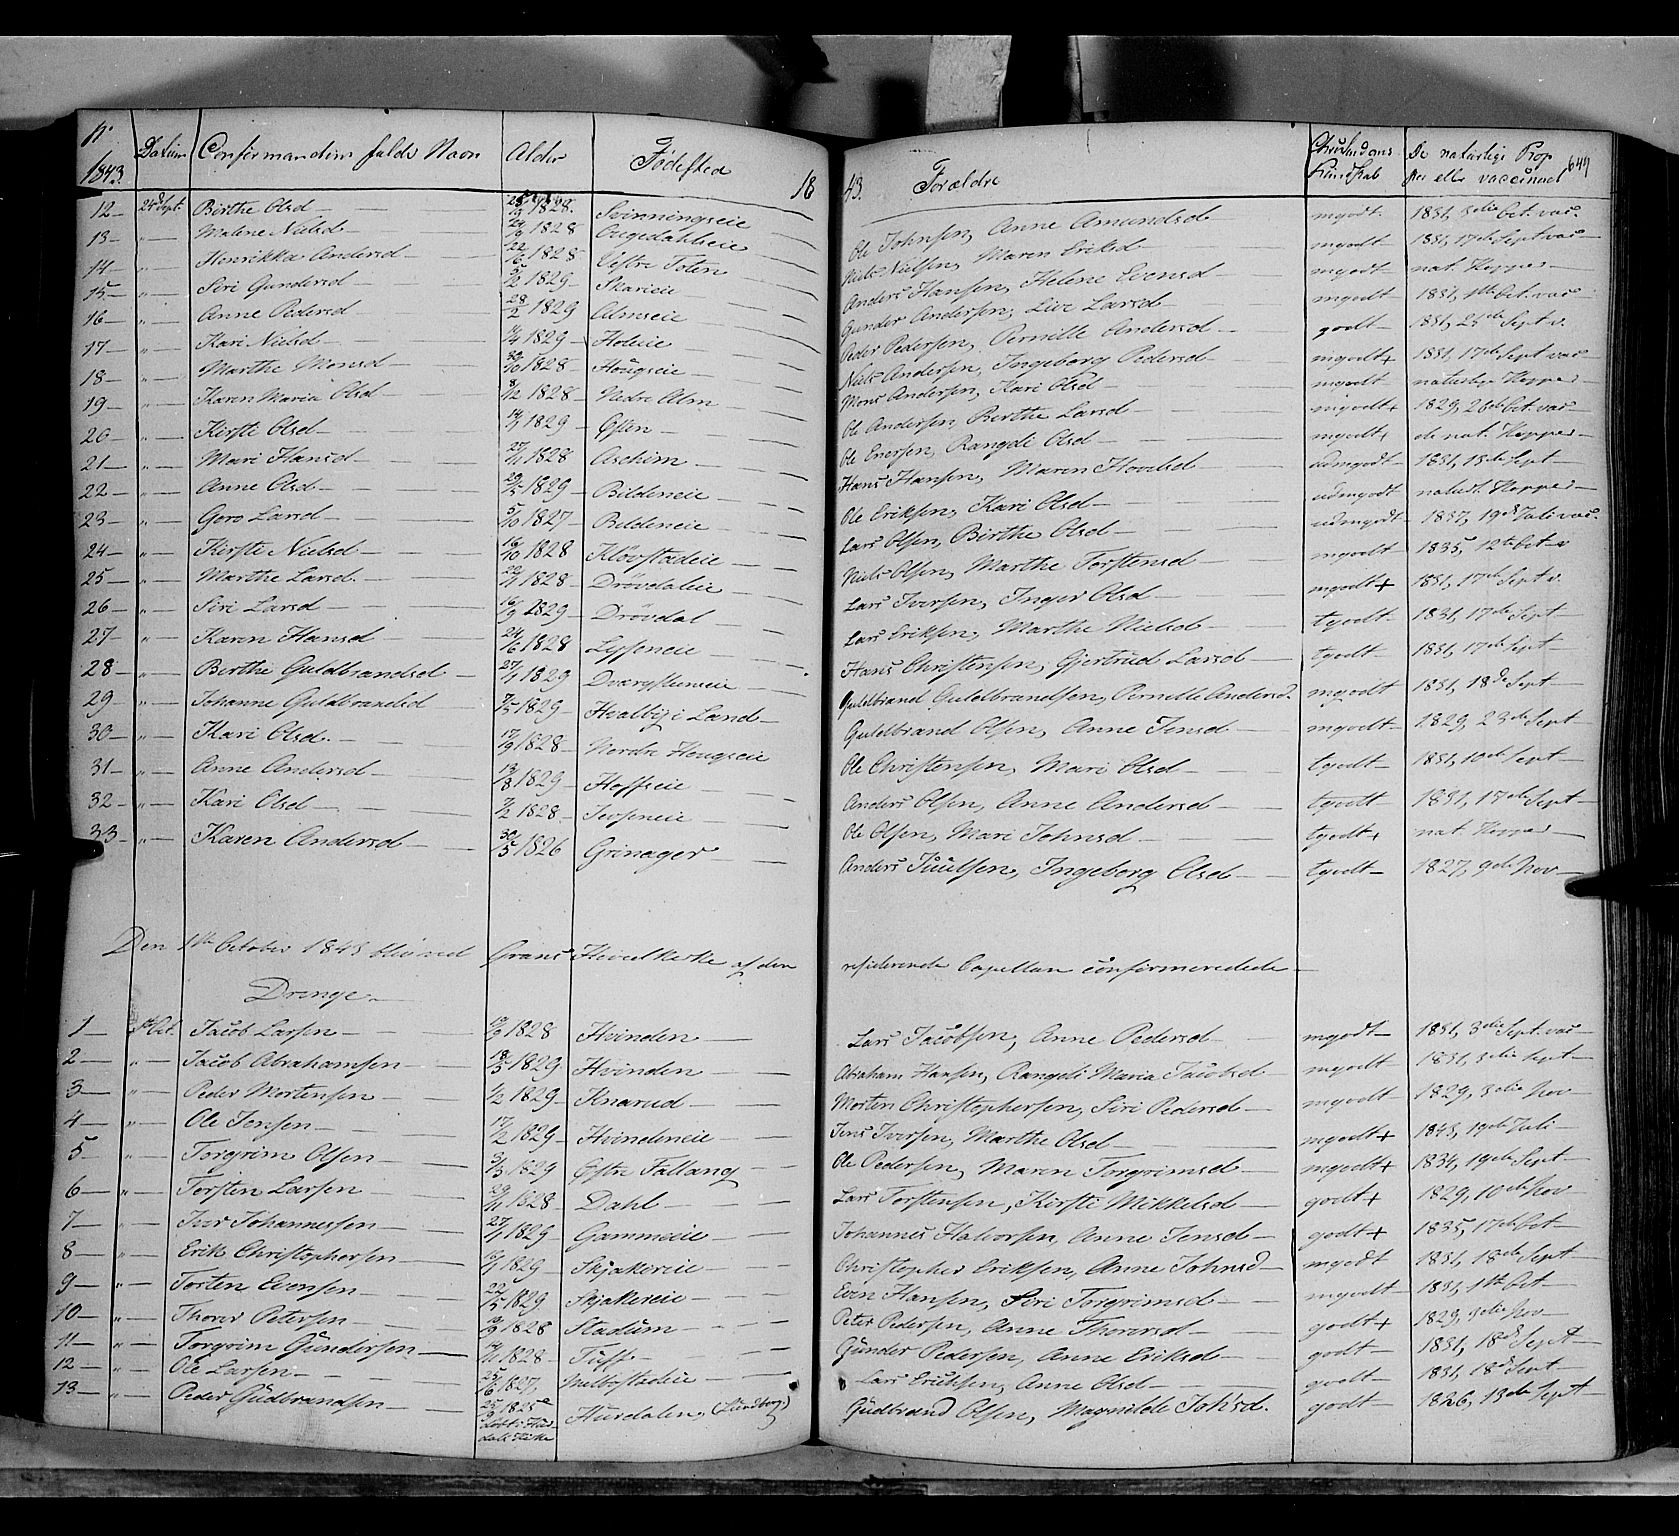 N. Datum Confirmandens fulde Navn Alder Fødested 18 43. Forældre Christendoms Kundskab De naturlige Kop per eller vaccineret 649
1843.
12 24 Sept. Birthe Olsd 1828. Svinningseie Ole Johnsen, Anne Amundsd mgodt 1831, 3die Oct. vac.
13 " Malene Nielsd 1828 Niels Nielsen, Maren Eriksd mgodt 1831, 17de Sept vac
14 " Henrikka Andersd 22/6 1828 Vestre Toten Anders Hansen, Helene Evensd mgodt nat. Kopper
15 " Siri Gundersd 1829 Skarieie Gunder Andersen, Live Larsd mgodt 1831, Oct. vac
16 " Anne Pedersd 28/2 1829 Almseie Peder Pedersen, Pernille Andersd godt 1831, 25de Sept v.
17 " Kari Nielsd 14/4 1829 Holeie Niels Andersen, Ingeborg Pedersd mgodt+ 1831, 17de Sept vac
18 " Marthe Monsd 30/10 1828 Hougseie Mons Andersen, Kari Olsd mgodt naturlige Kopper
19 " Karen Maria Olsd 8/12 1828 Nedre Alm Ole Andersen, Berthe Larsd mgodt+ 1829, 28de Oct. vac
20 " Kirsti Olsd 14/1 1829 Østen Ole Enersen, Rangdi Olsd mgodt+ de nat. Kopper
21 " Mari Hansd 27/11 1828 Aschim Hans Hansen, Maren Hovelsd udmgodt 1831, 18de Sept
22 " Anne Olsd 29/5 1829 Bildeneie Ole Eriksen, Kari Olsd udmgodt naturl. Kopper
23 " Goro Larsd 5/10 1827 Bildeneie Lars Olsen, Birthe Olsd udmgodt 1837, 19de Juli vac.
24 " Kirsti Nielsd 16/10 1828 Kløvstadeie Niels Olsen, Marthe Torstensd mgodt 1835, 12te Oct v
25 " Marthe Larsd. 22/11 1828 Drøvdaleie Lars Iversen, Inger Olsd mgodt+ 1831, 17de Sept v.
26 " Siri Larsd 16/9 1829 Drøvdal Lars Eriksen, Marthe Nielsd tgodt 1831, 17de Sept
27 " Karen Hansd 24/6 1828 Lysseneie Hans Christensen, Gjertrud Larsd tgodt 1831, 17de Sept
28 " Berthe Guldbrandsd 27/1 1829 Dværgsteneie Guldbrand Guldbrandsen, Pernille Andersd. mgodt 1831, 18de Sept
29 " Johanne Guldbrandsd 7/5 1829 Hvalby i Land Guldbrand Olsen, Anne Jensd mgodt 1829, 23de Sept
30 " Kari Olsd. 17/9 1828 Nordre Hougseie Ole Christensen, Mari Olsd tgodt 1831, 10de Sept
31 " Anne Andersd 13/3 1829 Hoffseie Anders Olsen, Anne Andersd tgodt 1831, 17de Sept
32 " Kari Olsd 1828. Ole Olsen, Mari Johnsd tgodt+ nat. Kopper
33 " Karen Andersd 30/5 1826 Grinager Anders Juulsen, Ingeborg Olsd tgodt 1827, 9de Nov
Den 1ste October 1843 blev ved Grans Hovedkirke af den residerende Capellan confirmerede
Drenge
1 1ste Oct. Jacob Larsen 1828 Hvinden Lars Jacobsen, Anne Pedersd mgodt 1831, 3die Sept. vac
2 " Jacob Abrahamsen 18/5 1829 Hvinden Abraham Hansen, Rangdi Maria Jacobsd mgodt 1831, 3die Sept
3 " Peder Mortensen 1/2 1829 Knarud Morten Christophersen, Siri Pedersd mgodt 1829, 3die Nov
4 " Ole Jensen 17/2 1829 Hvindeneie Jens Iversen, Marthe Olsd mgodt+ 1843, 19de Juli
5 " Torgrim Olsen 3/3 1829 Østre Fallang Ole Pedersen, Maren Torgrimsd mgodt+ 1834, 19de Sept
6 " Torsten Larsen 29/11 1828 Dahl Lars Torstensen, Kirsti Mikkelsd godt+ 1829, 10de Nov
7 " Iver Johannessen 27/1 1829 Gammeie Johannes Halvorsen, Anne Jensd godt+ 1835, 17de Oct
8 " Erik Christophersen 1829 Skjakereie Christopher Eriksen, Anne Johnsd mgodt 1831, 18de Sept
9 " Torsten Evensen 22/5 1829 Skjakereie Even Hansen, Siri Torgrimsd mgodt 1831, 1ste Oct
10 " Thorer Petersen 1828 Stadum Peter Pedersen, Anne Thorersd godt+ 1829, 3die Nov
11 " Torgrim Gundersen 1828 Tuff Gunder Pedersen, Anne Eriksd godt 1831, 18de Sept
12 " Ole Larsen 1827, Melbostadeie Lars Eriksen, Anne Olsd godt 1831, 18de Sept
13 " Peder Gudbrandsen 1825 Hurdalen, Gudbrand Olsen, Magnilde Johsd. godt 1826, 13de Sept